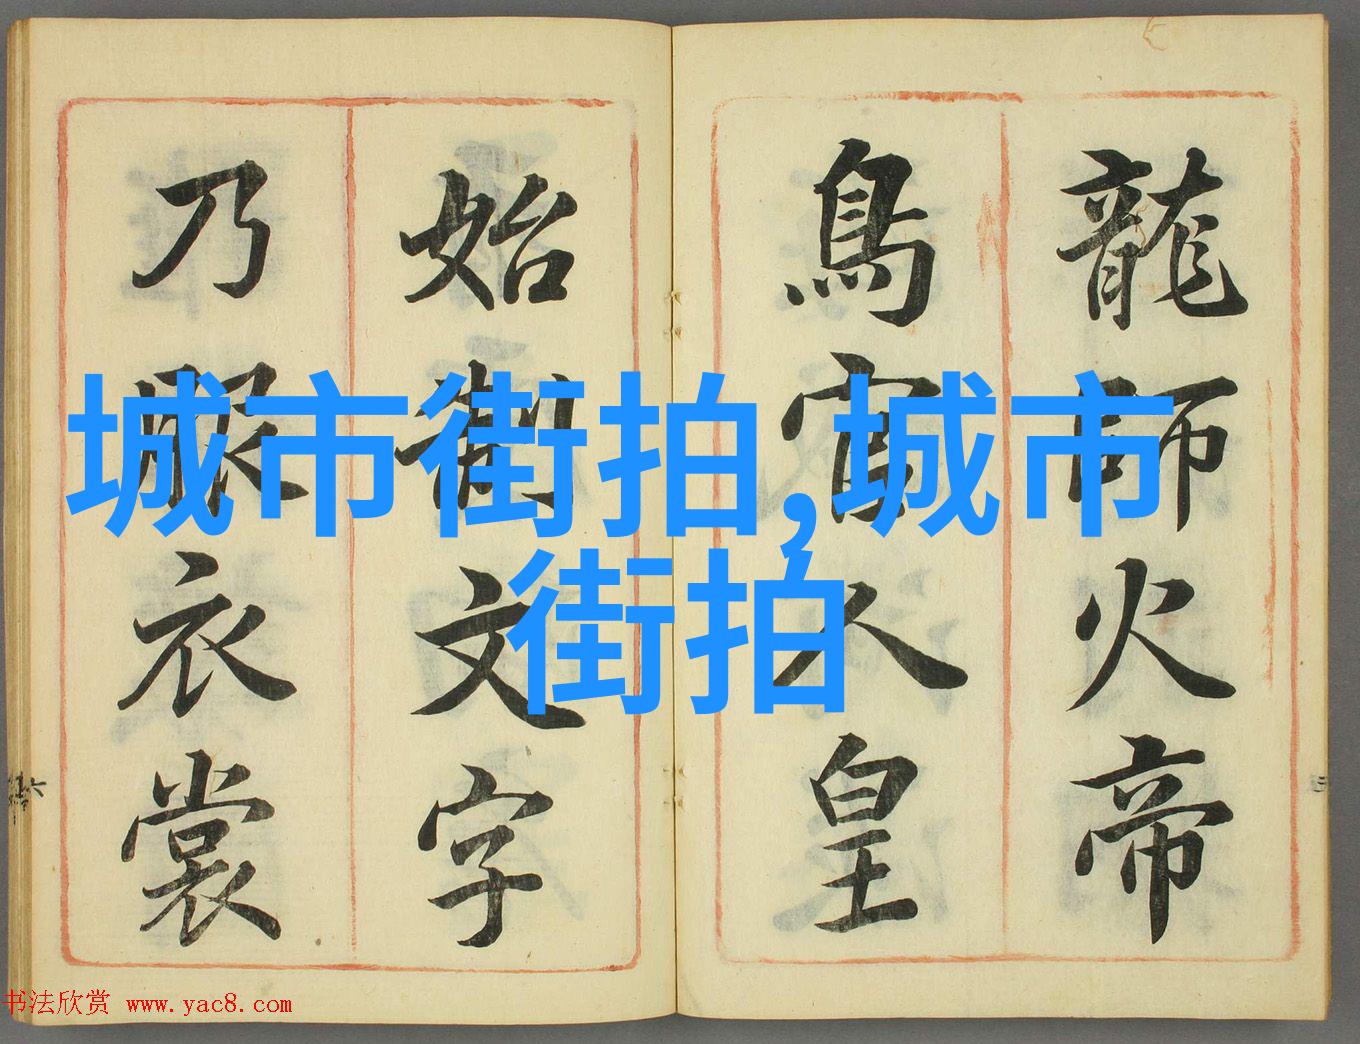 龍師火帝
鳥官人皇
始制文字
乃服衣裳
城市街拍,城市
街拍
书法欣赏 www.yac8.com